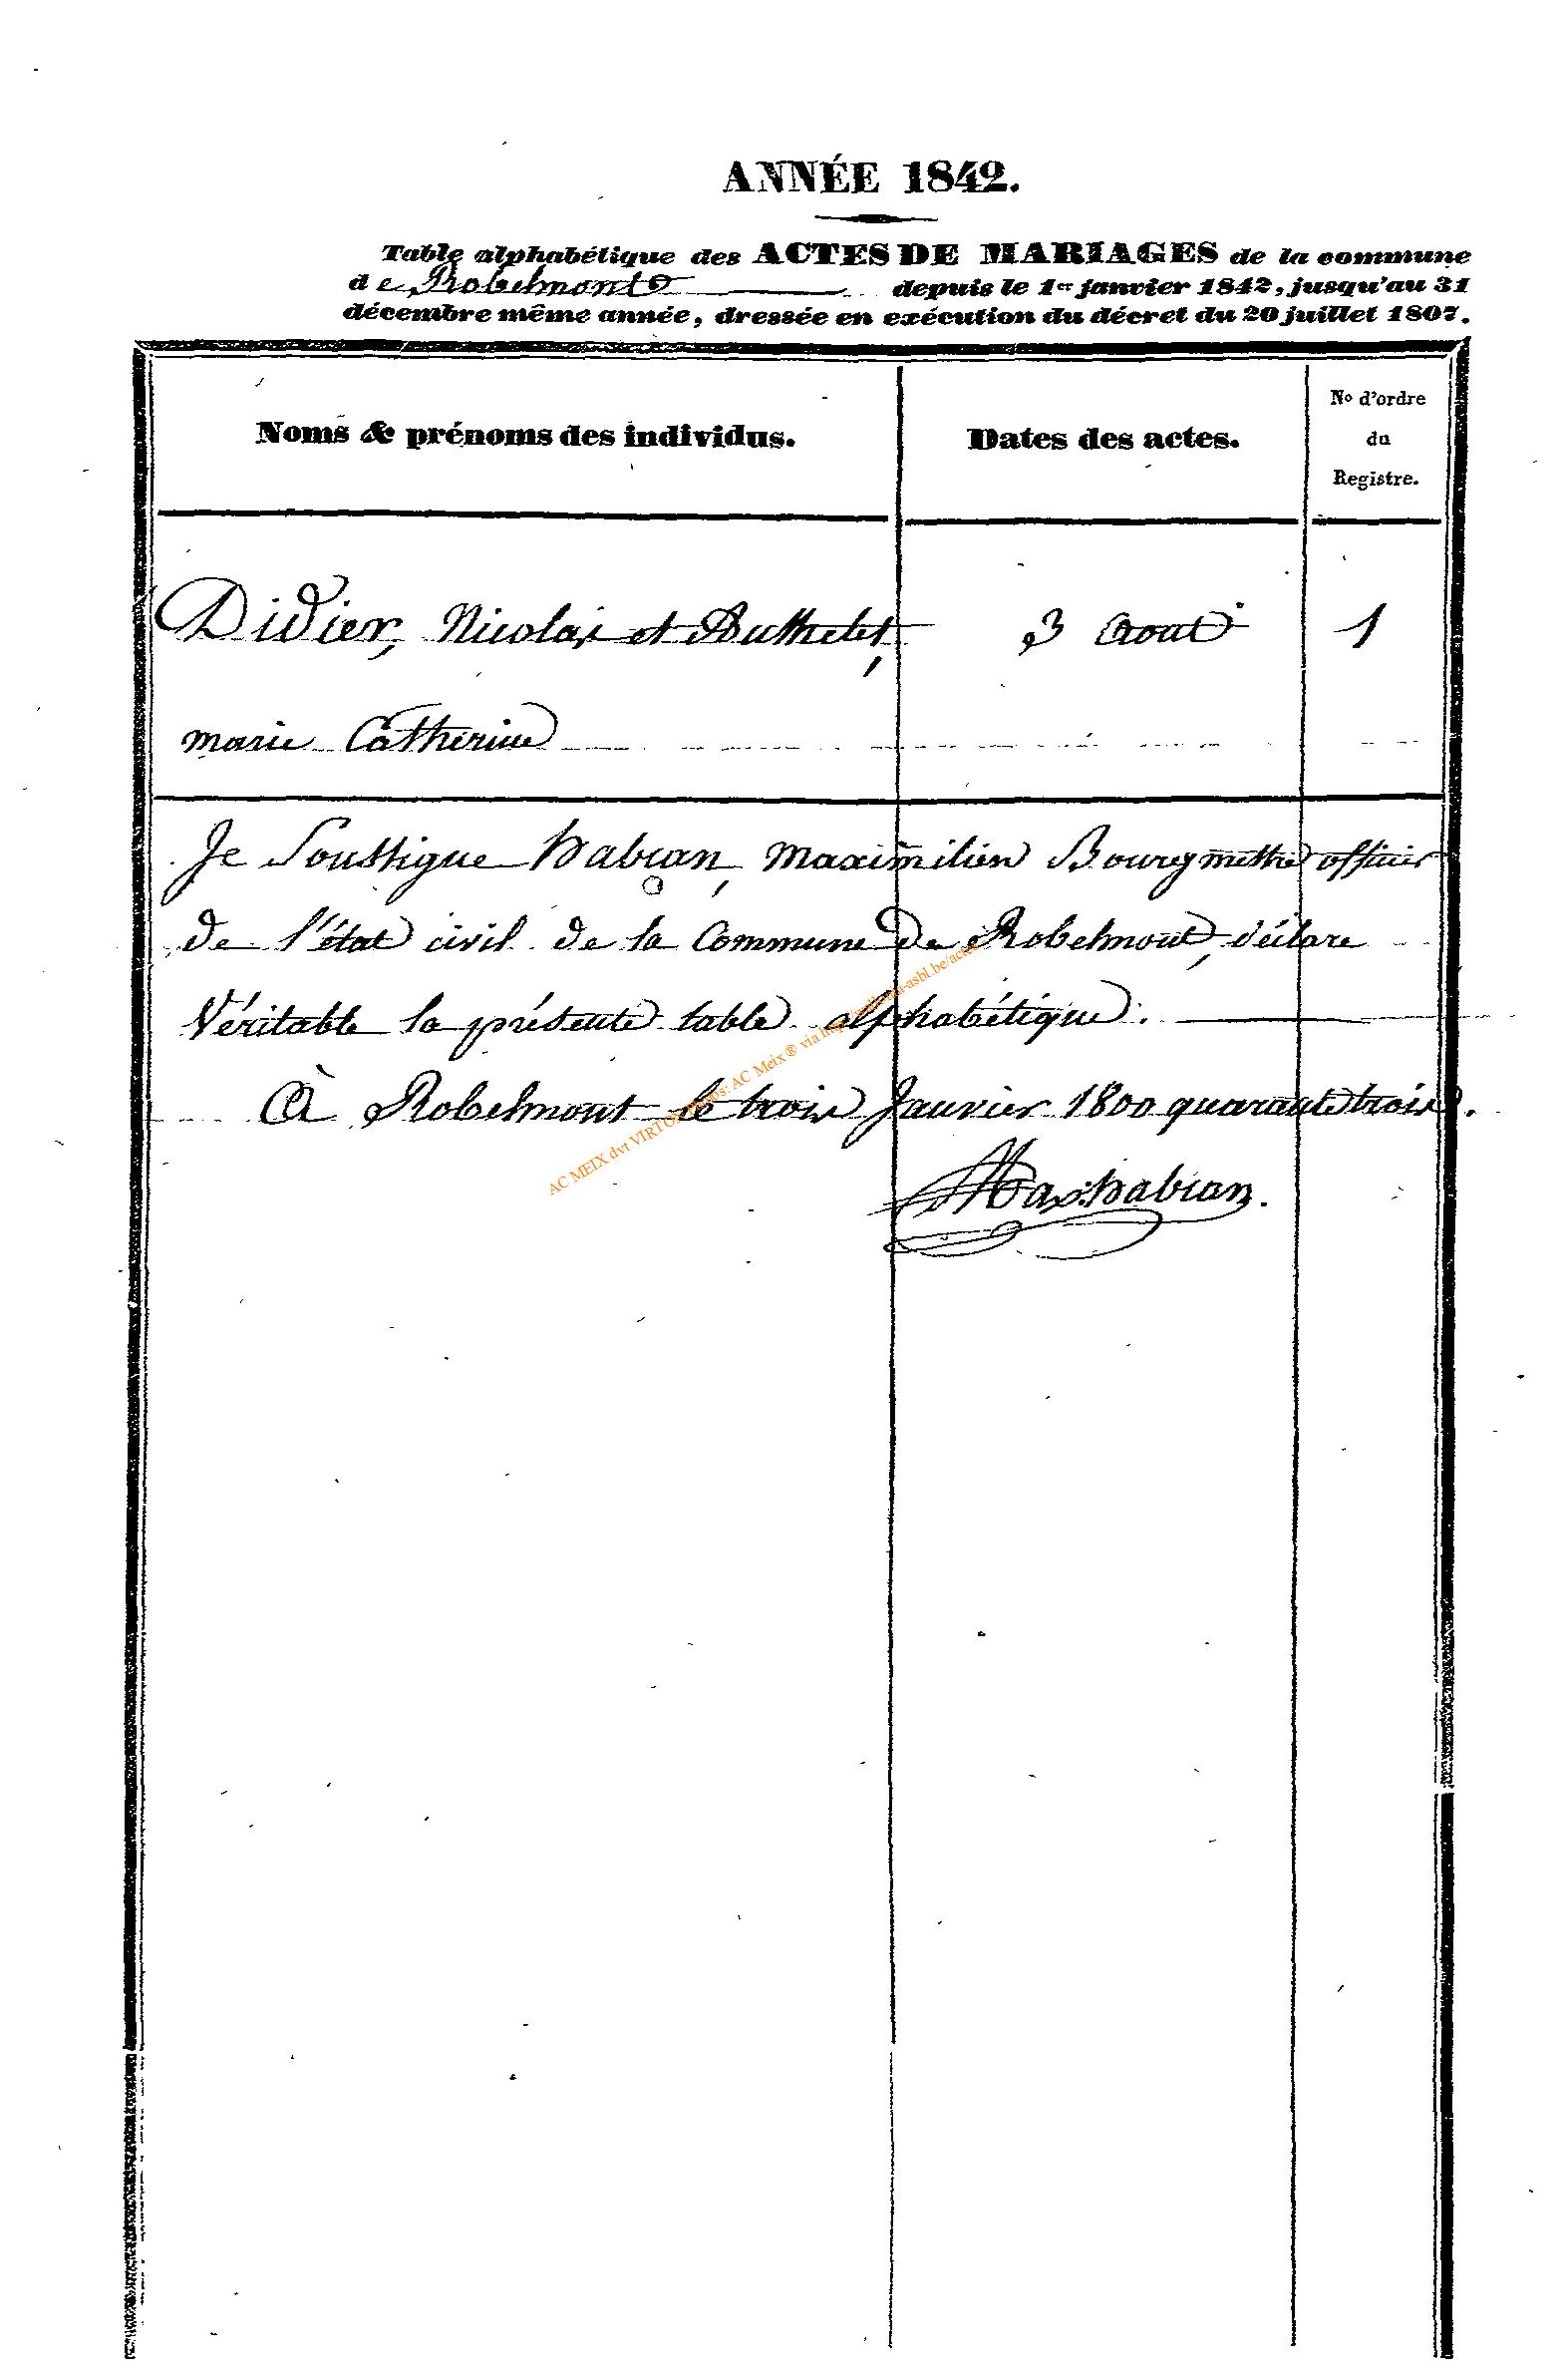 ANNÉE 1842.
Table alphabétique des ACTES DE MARIAGES de la commune
de Robelmont depuis le 1er janvier 1842, jusqu'au 31
décembre même année, dressée en exécution du décret du 20 juillet 1807.
Noms & prénoms des individus.
Dates des actes.
No d'ordre
du
Registre.
Didier, Nicolas et Authelet, 3 Aout 1
marie Catherine
Je Soussigne habran, Maximilien Bourgmettre officier
de l'état civil de la Commune de Robelmont, déclare
Véritable la présente table alphabétique.
A Robelmont le trois Janvier 1800 quarante trois.
Max: habran.
AC MEIX dvt VIRTON AC Meix® via